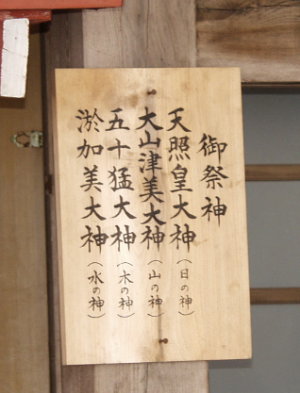 御祭神
天照皇大神（日の神）
大山津美大神（山の神）
五十猛大神（木の神）
淤加美大神（水の神）